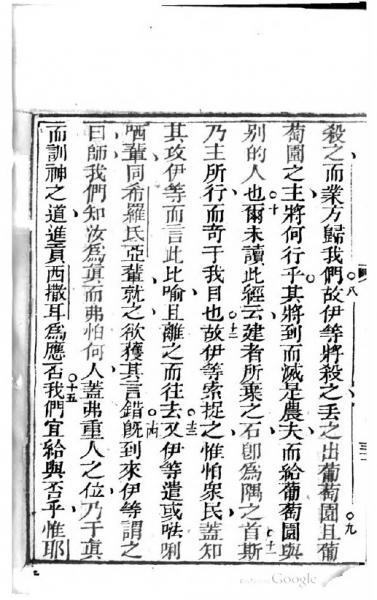 殺之而業方歸我們故伊等將殺之丟之出葡萄園且葡
八
九
萄園之主將何行乎其將到而滅是農夫而給葡萄園與
十
別的人也爾未讀此經云建者所棄之石卽為隅之首斯
十一
乃主所行而奇于我目也故伊等索捉之惟怕衆民蓋知
十二
其攻伊等而言此比喻且離之而往去又伊等遣或𠵽唎
十三
哂輩同希羅氏亞輩就之欲獲其言錯旣到來伊等謂之
十四
曰師我們知汝為真而弗怕何人蓋弗重人之位乃于真
而訓神之道進貢西撒耳為應否我們宜給與否乎惟耶
十五
Google